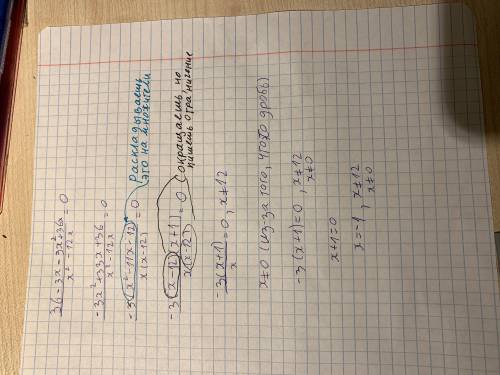 36-3x-3x²+36x / x²-12x = 0
-3x²+33x+36 / x²-12x = 0
-3(x²-11x-12) / x(x-12) = 0
Раскладываешь
это на множители
-3(x-12)(x+1) / x(x-12) = 0
Сокращаешь, но
пишешь ограничение
-3(x+1) / x = 0, x≠12
x≠0 (из-за того, что это дробь)
-3(x+1)=0, x≠12
x≠0
x+1=0
x=-1, x≠12
x≠0